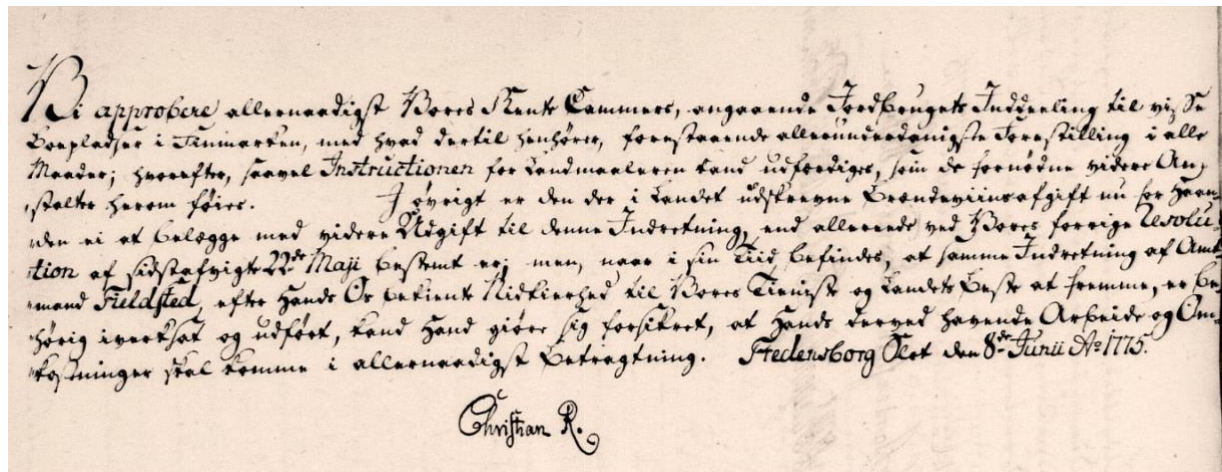 Vi approbere allernaadigst Vores Rente Cammers, angaaende Jordbrugets Inddeeling til visse
Boepladser i Finmarken, med hvad dertil henhører, forestaaende allerunderdanigste Forestilling i alle
Maader; hvorefter, saavel Instructionen for Landmaaleren kand udfærdiges, som de fornødne videre An-
stalter herom føies. I øvrigt er den der i Landet udskrevne Brændeviinsafgift nu for Haan-
den ei at belægge med videre Udgift til denne Indretning, end allereede ved Vores forrige Resolu-
tion af sidstafvigte 22de Maji bestemt er; men, naar i sin Tiid befindes, at samme Indretning af Amt-
mand Fieldsted, efter Hands Os bekiente Nidkierhed til Vores Tieniste og Landets Beste at fremme, er be-
hørig iverksat og udført, kand Hand giøre sig forsikret, at Hands derved havende Arbeide og Om-
kostninger skal komme i allernaadigst Betragtning. Fredensborg Slot den 8de Junii Ao 1775.
Christian R.